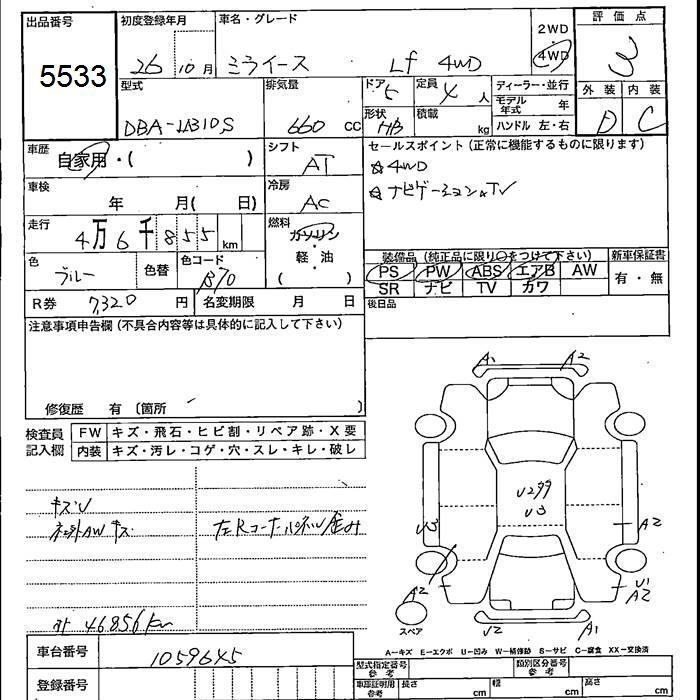 出品番号
5533
初度登録年月
26 10月
車名・グレード
ミライース Lf 4WD
2WD
4WD
評価点
3
型式
DBA-LA310S
排気量
660 cc
ドア 5
形状 HB
定員 4 人
積載 kg
ディーラー・並行
モデル年式 年
ハンドル 左・右
外装 内装
D C
車歴
自家用・( )
シフト
AT
車検
年 月( 日)
冷房
AC
走行
4万6千855km
燃料
ガソリン
軽・油
( )
色
ブルー
色替
色コード
B70
R券 7,320 円
名変期限 月 日
セールスポイント(正常に機能するものに限ります)
☆4WD
☆ナビゲーション☆TV
装備品(純正品に限り○をつけて下さい)
PS PW ABS エアB AW
SR ナビ TV カワ
新車保証書
有・無
後日品
注意事項申告欄(不具合内容等は具体的に記入して下さい)
修復歴 有〔箇所 〕
検査員記入欄
FW キズ・飛石・ヒビ割・リペア跡・X要
内装 キズ・汚レ・コゲ・穴・スレ・キレ・破レ
キズU
AWキズ
左Rコーナーパネル歪み
計 46856km
A1 A2
U299
U3
U3
A2
A2
U1
A2
スペア
U2 A1
A-キズ E-エクボ U-凹み W-補修跡 S-サビ C-腐食 XX-交換済
車台番号
1059645
登録番号
型式指定番号
参考
類別区分番号
参考
車庫証明用
参考
長さ cm
幅 cm
高さ cm